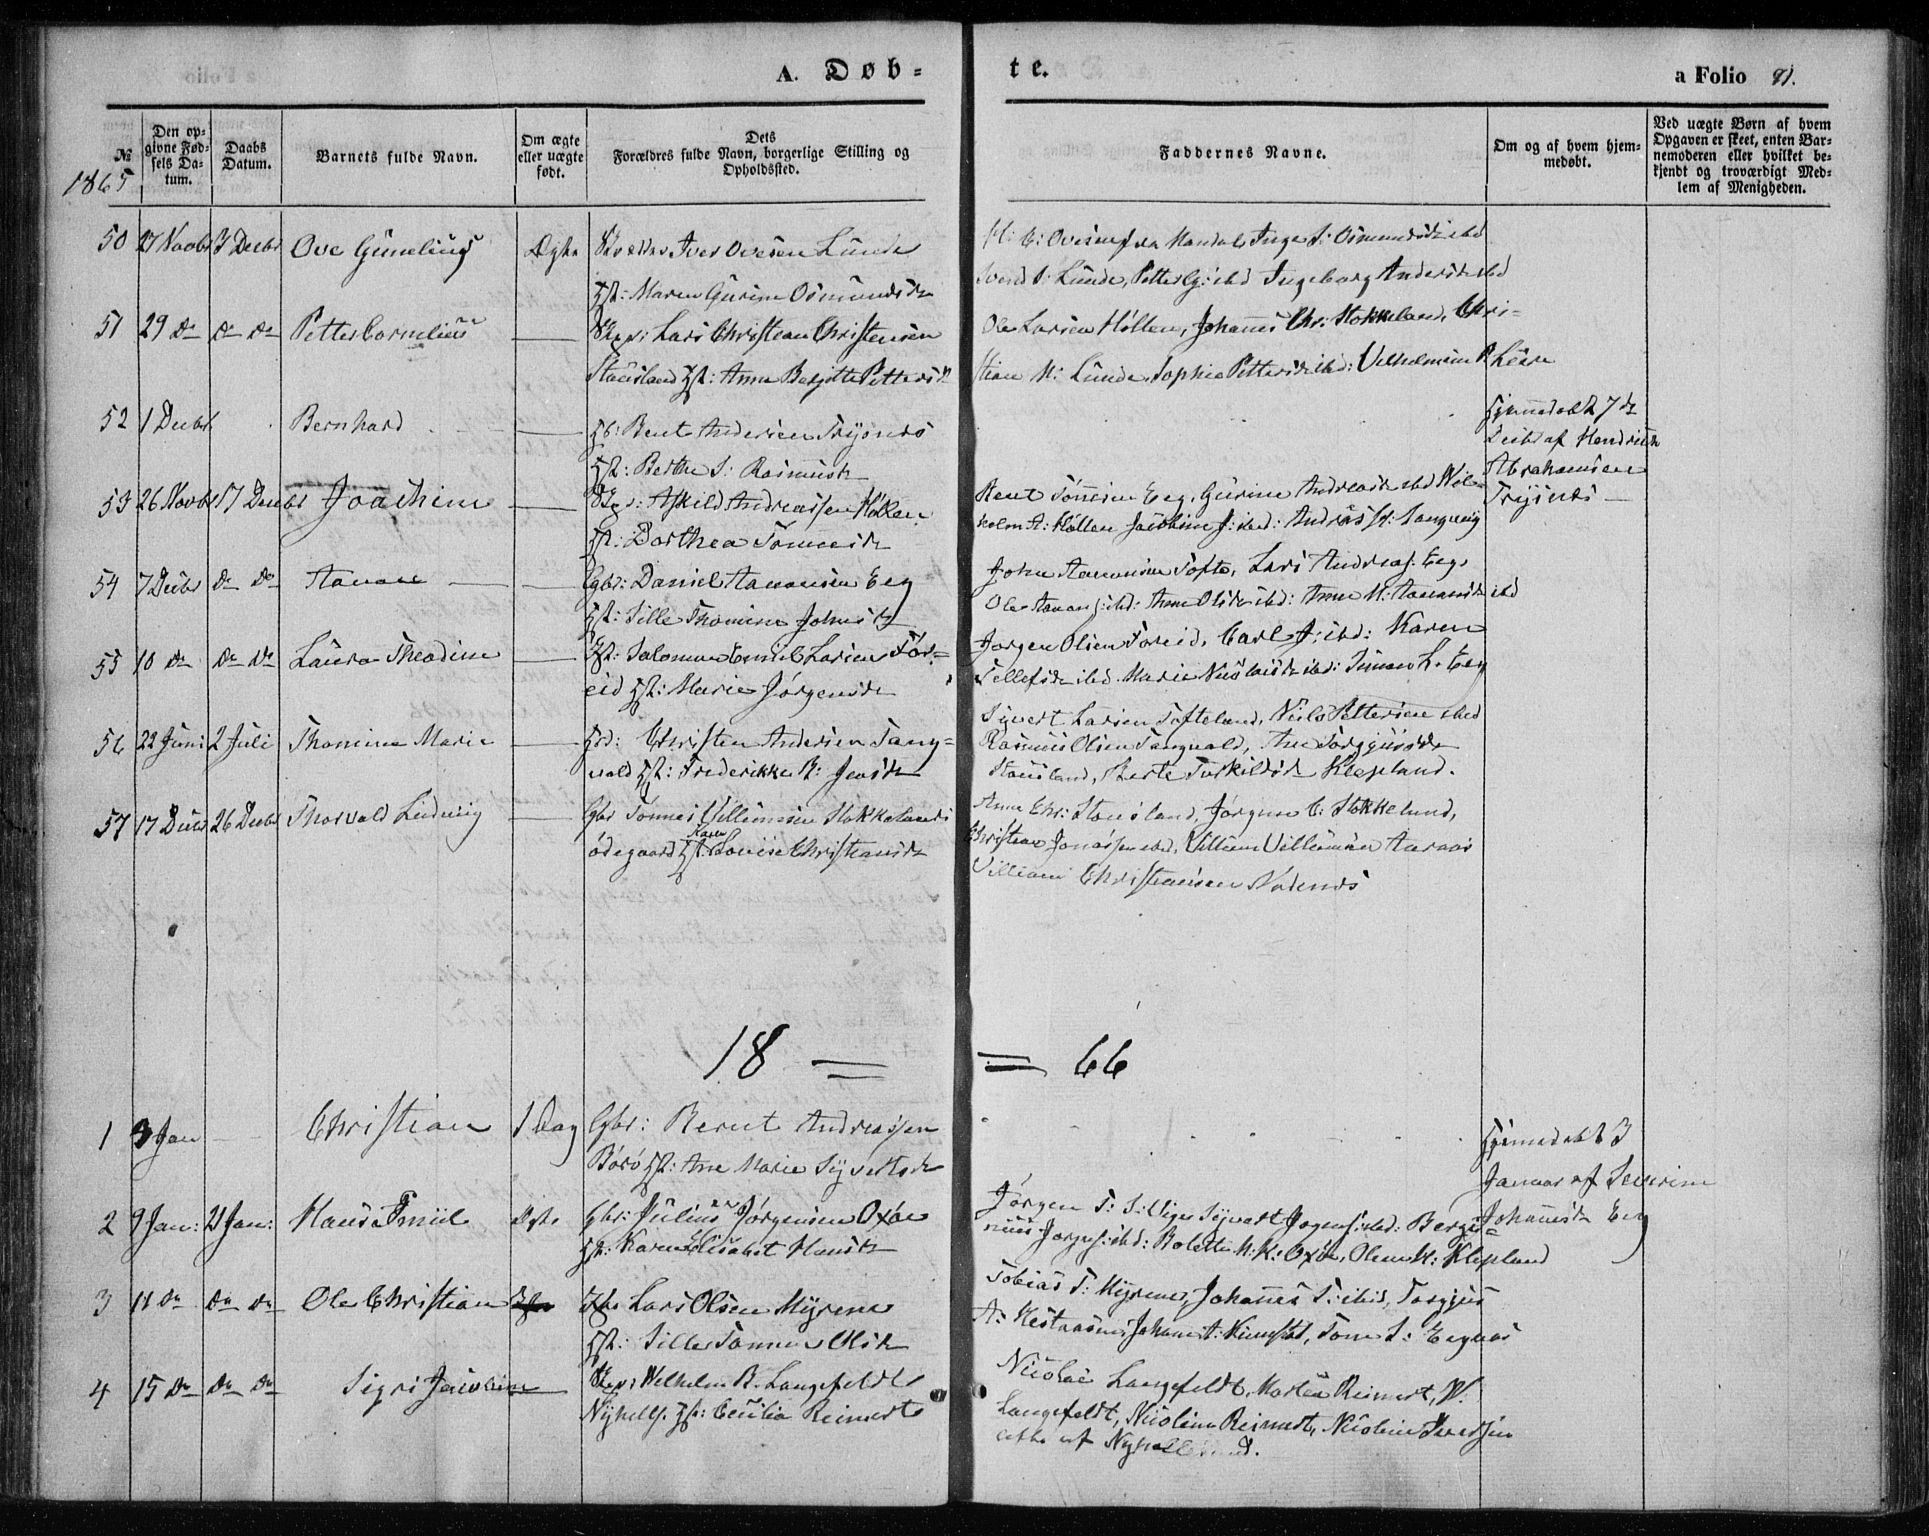 A. Døb-
te.
a Folio 81.
№
Den op-
givne Fød-
sels Da-
tum.
Daabs
Datum.
Barnets fulde Navn.
Om ægte
eller uægte
født.
Dets
Forældres fulde Navn, borgerlige Stilling og
Opholdssted.
Faddernes Navne.
Om og af hvem hjem-
medøbt.
Ved uægte Børn af hvem
Opgaven er skeet, enten Bar-
nemoderen eller hvilket be-
kjendt og troværdigt Med-
lem af Menigheden.
1865
50 27 Novbr 3 Decbr Ove Gunelius Ægte Iver Ovesen Lunde
Hst: Maren Gurine Osmundsdr
Ovesen fra Mandal, Inge S: Osmundsdr ibd
Svend S: Lunde, Petter G: ibd Ingeborg Andersdr ibd
51 29 Do Do Do Petter Cornelius — Lars Christian Christensen
Stausland Hst: Anne Bergitte Pettersdr
Ole Larsen Høllen, Johannes Chr: Stokkeland, Chri-
stian M: Lunde, Sophie Pettersdr ibd: Vilhelmine
52 1 Decbr Bernhard — Bent Andersen Trysnes
Hst: Berthe S: Rasmusdr
Hjemmedøbt 7de
Decbr af Hendrik
Abrahamsen
Trysnes —
53 26 Novbr 17 Decbr Joachim — Askild Andreassen Høllen
Hst: Dorthea Tønnesdr
Bent Tønnesen Eeg, Gurine Andreasdr ibd Wil-
helm A: Høllen Jacobine J: ibd: Andreas H: Langenig
54 7 Decbr Do Do Aanon — Gbr: Daniel Aanonsen Eeg
Hst: Sille Thomine Johnsdr
John Aanonsen Tofte, Lars Andreas: Eeg,
Ole Aanons: ibd: Anne Olsdr ibd: Anne M: Aanonsdr ibd
55 10 Do Do Do Laura Theodine — Salomon Emil Larsen Før-
eid Hst: Marie Jørgensdr
Jørgen Olsen Føreid, Carl J: ibd: Karen
Tellefsdr ibd. Marie Nielsdr ibd: Simon L. Eeg
56 22 Juni 2 Juli Thomine Marie — Christen Andersen Tang-
vald Hst: Frederikke B: Jensdr
Syvert Larsen Tofteland, Niels Pettersen ibd
Rasmus Olsen Tangvald, Ane Torgjusdr
Stausland, Berte Torkildsdr Klepland.
57 17 Decbr 26 Decbr Thorvald Ludvig — Gbr Tønnes Villumsen Stokkelands
ødegaard Hst: Karen Lovise Christiansdr
Anne Chr: Stausland, Jørgine C: Stokkeland,
Christian Jonassen ibd, Villum Villumsen Aaraas
Villiam Christiansen Nodenes
18 =
= 66
1 3 Jan — Christian 1 Dag Gbr: Bernt Andreassen
Borø Hst: Ane Marie Syvertsdr
Hjemmedøbt 3
Januar af Severine
Johannesdr Eeg
2 9 Jan: 21 Jan: Hans Emiil Ægte Gbr: Julius Jørgensen Oxøe
Hst: Karen Elisabet Hansdr
Jørgen T: S: Uige Syvert Jørgens: ibd: Bergi-
nius Jørgens: ibd: Bolette N: K: Oxøe, Olene H: Klepland
3 11 Do Do Do Ole Christian Lars Olsen Myrene
Hst: Sille Tonine Olsdr
Tobias T: Myrene, Johannes T: ibid, Torgjus
A: Hestaasen, Johan A: Kunstad, Tom S: Eegaas
4 15 Do Do Do Sigri Jacobine — Wilhelm R. Langefeldt
Nyhell. Hst: Cecilia Reinert
Nicolai Langefeldt, Martin Reinert, W.
Langefeldt, Nicoline Reinert, Nicoline Svendsen
alle af Nyhellesund.